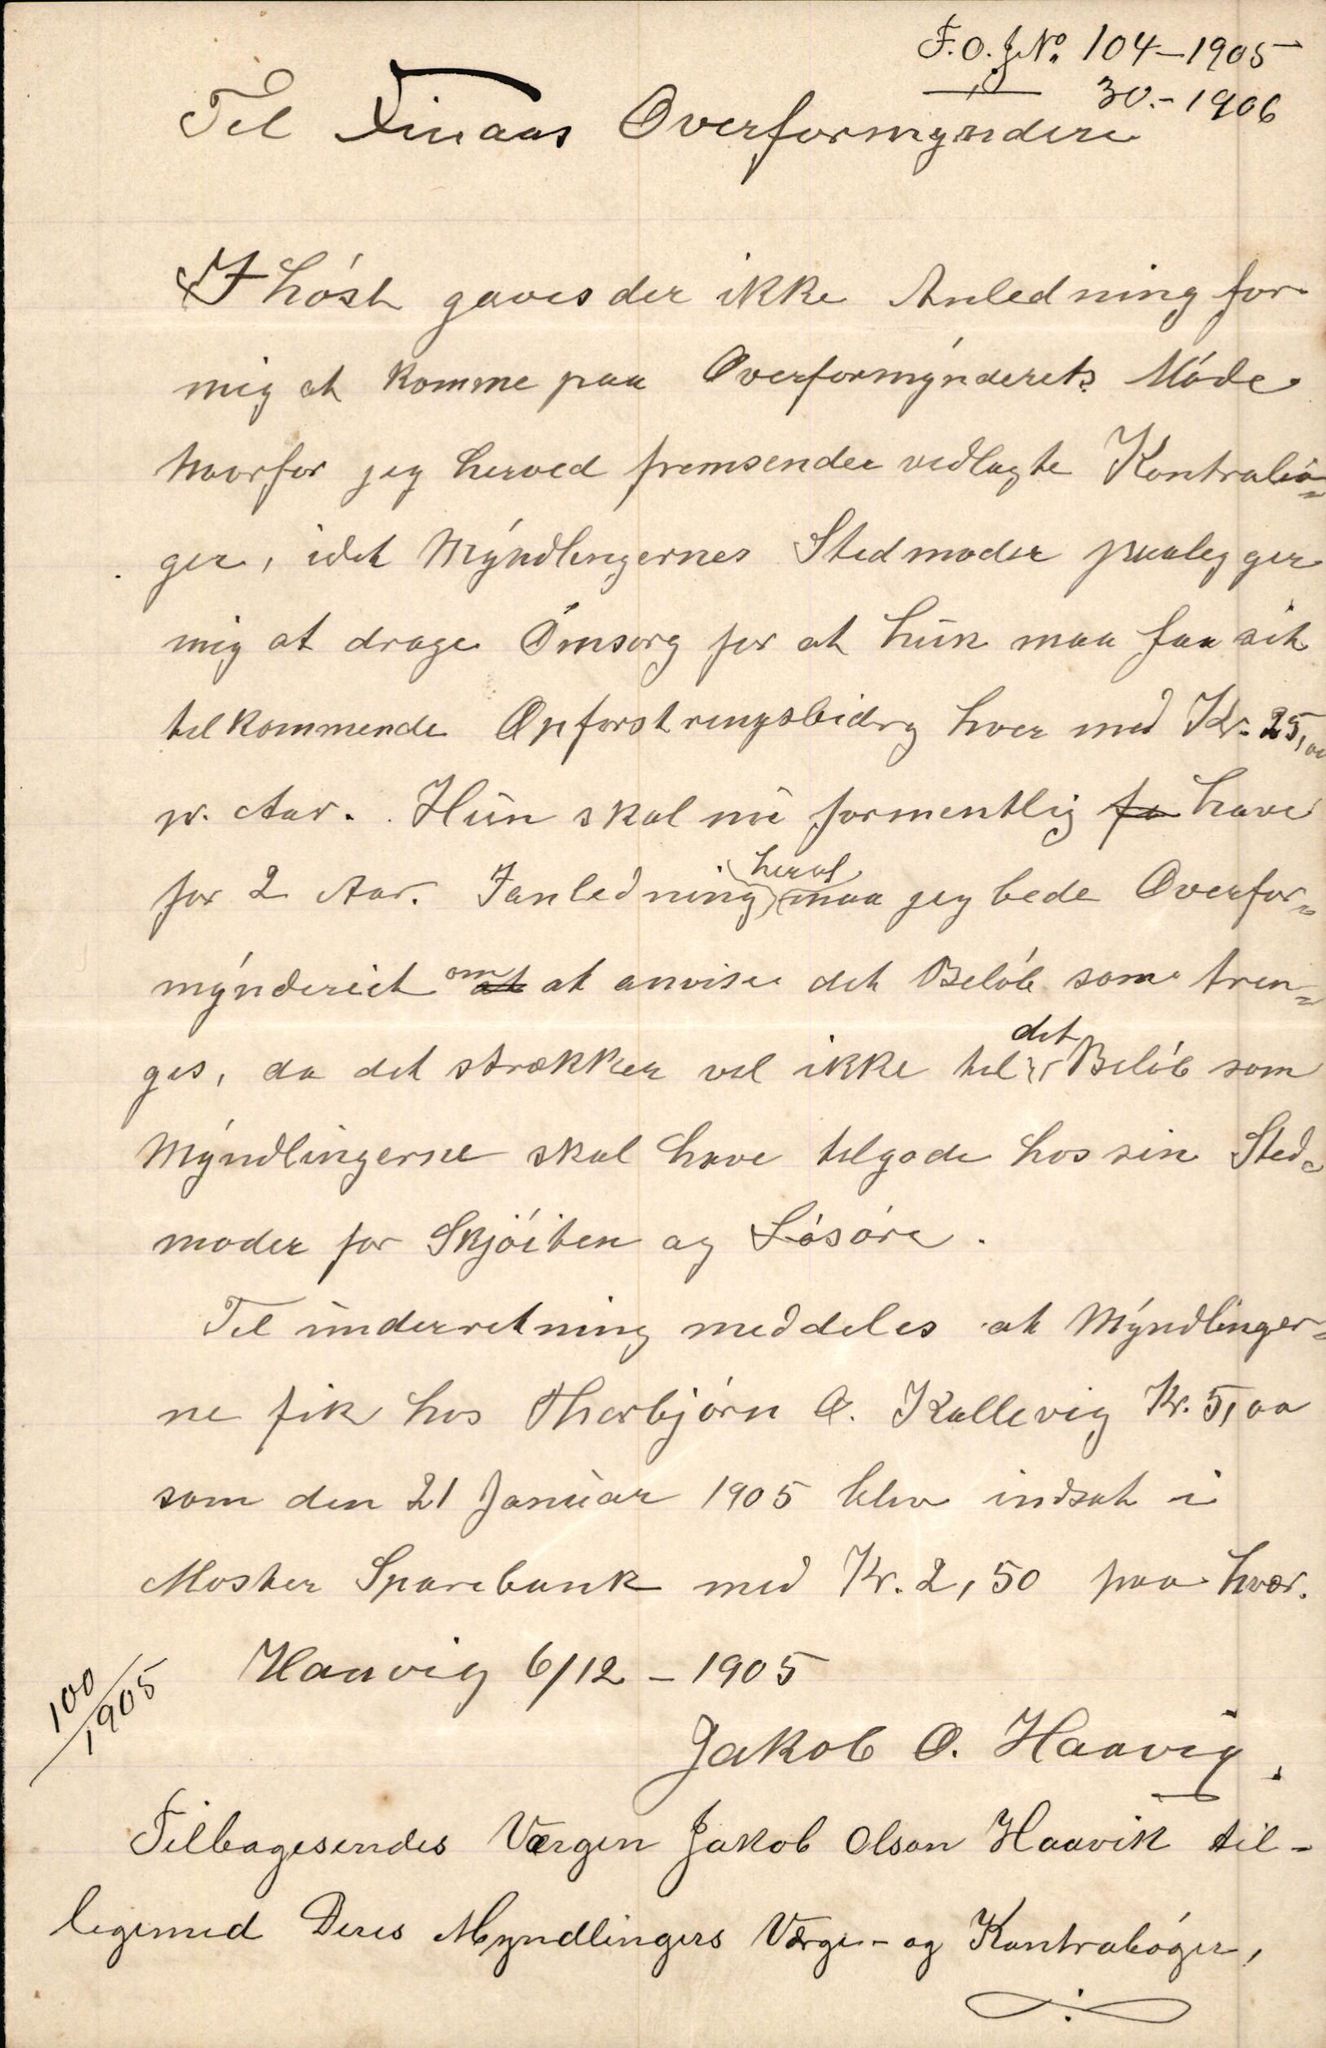 F.O.J.No. 104-1905
30.-1906
Til Finaas Overformynderi
I høst gaves der ikke Anledning for
mig at komme paa Overformynderets Møde
hvorfor jeg herved fremsender vedlagte Kontrabø=
ger, idet Myndlingernes Stedmoder paalegger
mig at drage Omsorg for at hun maa faa sit
tilkommende Opfostringsbidrg hver med Kr. 25,00
pr. Aar. Hun skal nu formentlig fa have
for 2 Aar. Ianledning heraf maa jeg bede Overfor=
mynderiet om at at anvise det Beløb som tren=
ges, da det strækker vel ikke til det Beløb som
Myndlingerne skal have tilgode hos sin Sted=
moder for Skjøiten og Løsøre.
Til underretning meddeles at Myndlinger=
ne fik hos Thorbjørn O. Kallevig Kr. 5,00
som den 21 Januar 1905 blev indsat i
Moster Sparebank med Kr. 2,50 paa hver.
Haavig 6/12 - 1905
100/1905
Jakob O. Haavig.
Tilbagesendes Værgen Jakob Olson Haavik til-
ligemed Deres Myndlingers Værge- og Kontrabøger,